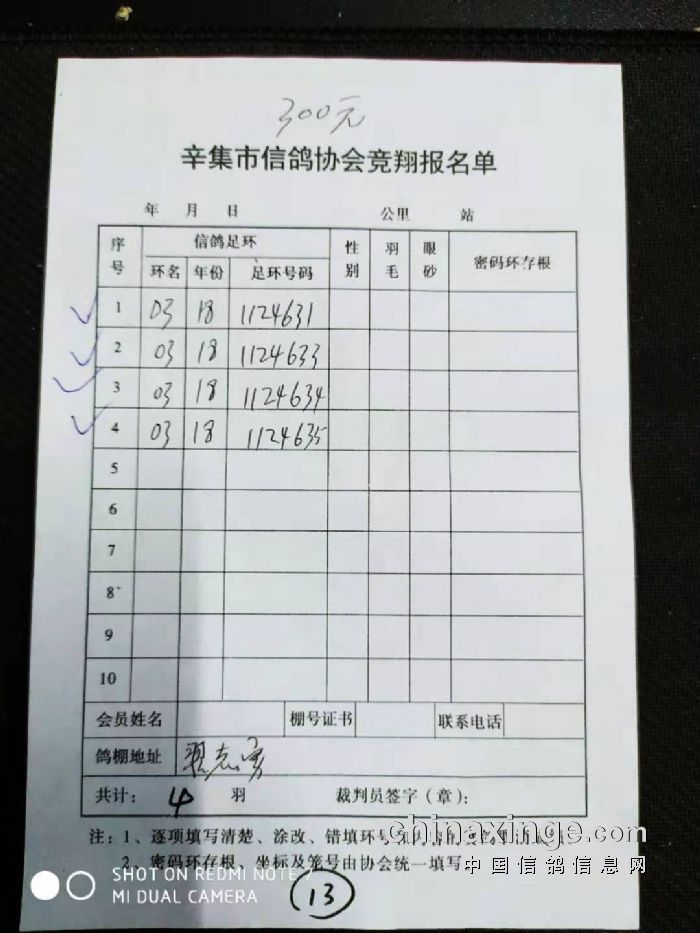 300元
辛集市信鸽协会竞翔报名单
年 月 日 公里 站
序号 信鸽足环 性别 羽毛 眼砂 密码环存根
环名 年份 足环号码
1 03 18 1124631
2 03 18 1124633
3 03 18 1124634
4 03 18 1124635
5
6
7
8
9
10
会员姓名 棚号证书 联系电话
鸽棚地址
共计: 4 羽 裁判员签字(章):
注:1、逐项填写清楚、涂改、错填环号
2、密码环存根、坐标及笼号由协会统一填写
chinaxinge.com
中国信鸽信息网
SHOT ON REDMI NOTE 7
MI DUAL CAMERA
13